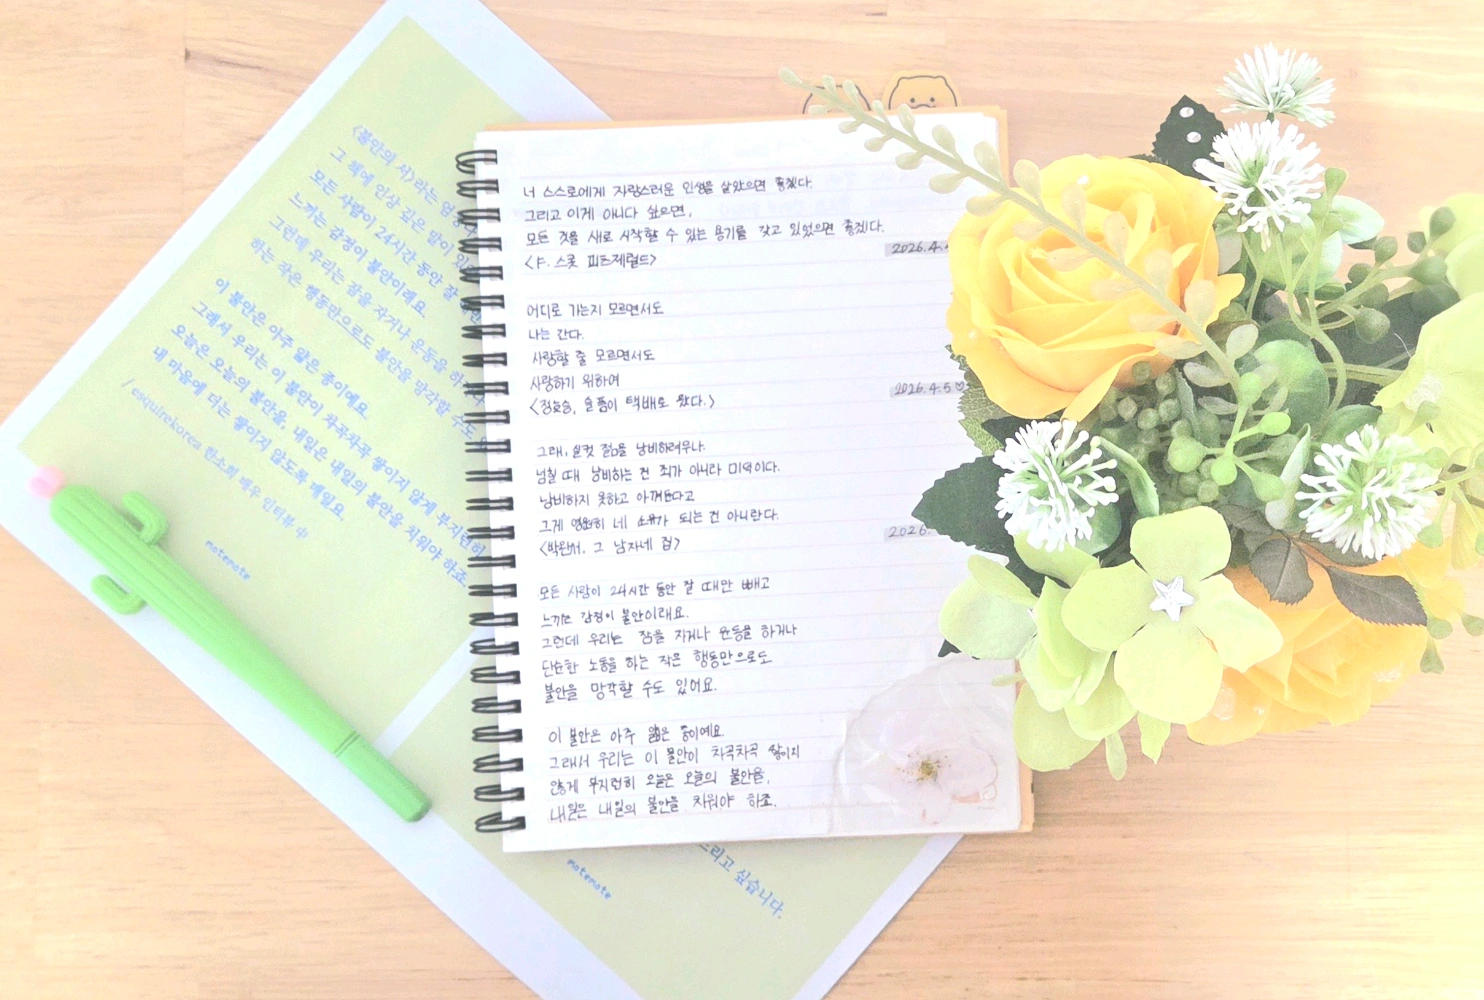 너 스스로에게 자랑스러운 인생을 살았으면 좋겠다.
그리고 이게 아니다 싶으면,
모든 것을 새로 시작할 수 있는 용기를 갖고 있었으면 좋겠다.
2026.4.
<F. 스콧 피츠제럴드>
어디로 가는지 모르면서도
나는 간다.
사랑할 줄 모르면서도
사랑하기 위하여
2026.4.5♡
<정호승, 슬픔이 택배로 왔다.>
그래, 실컷 젊음을 낭비하려무나.
넘칠 때 낭비하는 건 죄가 아니라 미덕이다.
낭비하지 못하고 아껴둔다고
그게 영원히 네 소유가 되는 건 아니란다.
2026.
<박완서, 그 남자네 집>
모든 사람이 24시간 동안 잘 때만 빼고
느끼는 감정이 불안이래요.
그런데 우리는 잠을 자거나 운동을 하거나
단순한 노동을 하는 작은 행동만으로도
불안을 망각할 수도 있어요.
이 불안은 아주 얇은 종이예요.
그래서 우리는 이 불안이 차곡차곡 쌓이지
않게 부지런히 오늘은 오늘의 불안을,
내일은 내일의 불안을 치워야 하죠.
<불안의 서>라는
그 책에 인상 깊은 말이
모든 사람이 24시간 동안 잘
느끼는 감정이 불안이래요.
그런데 우리는 잠을 자거나 운동을 하
하는 작은 행동만으로도 불안을 망각할 수도
이 불안은 아주 얇은 종이예요.
그래서 우리는 이 불안이 차곡차곡 쌓이지 않게 부지런히
오늘은 오늘의 불안을, 내일은 내일의 불안을 치워야 하죠.
내 마음에 더는 쌓이지 않도록 매일요.
/ esquirekorea 한소희 배우 인터뷰 中
motemote
드리고 싶습니다.
motemote